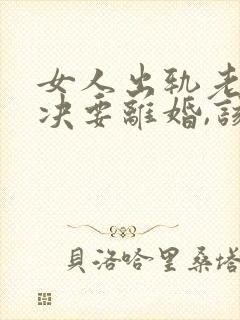 女人出轨老
决要離婚,該
貝洛哈里桑塔